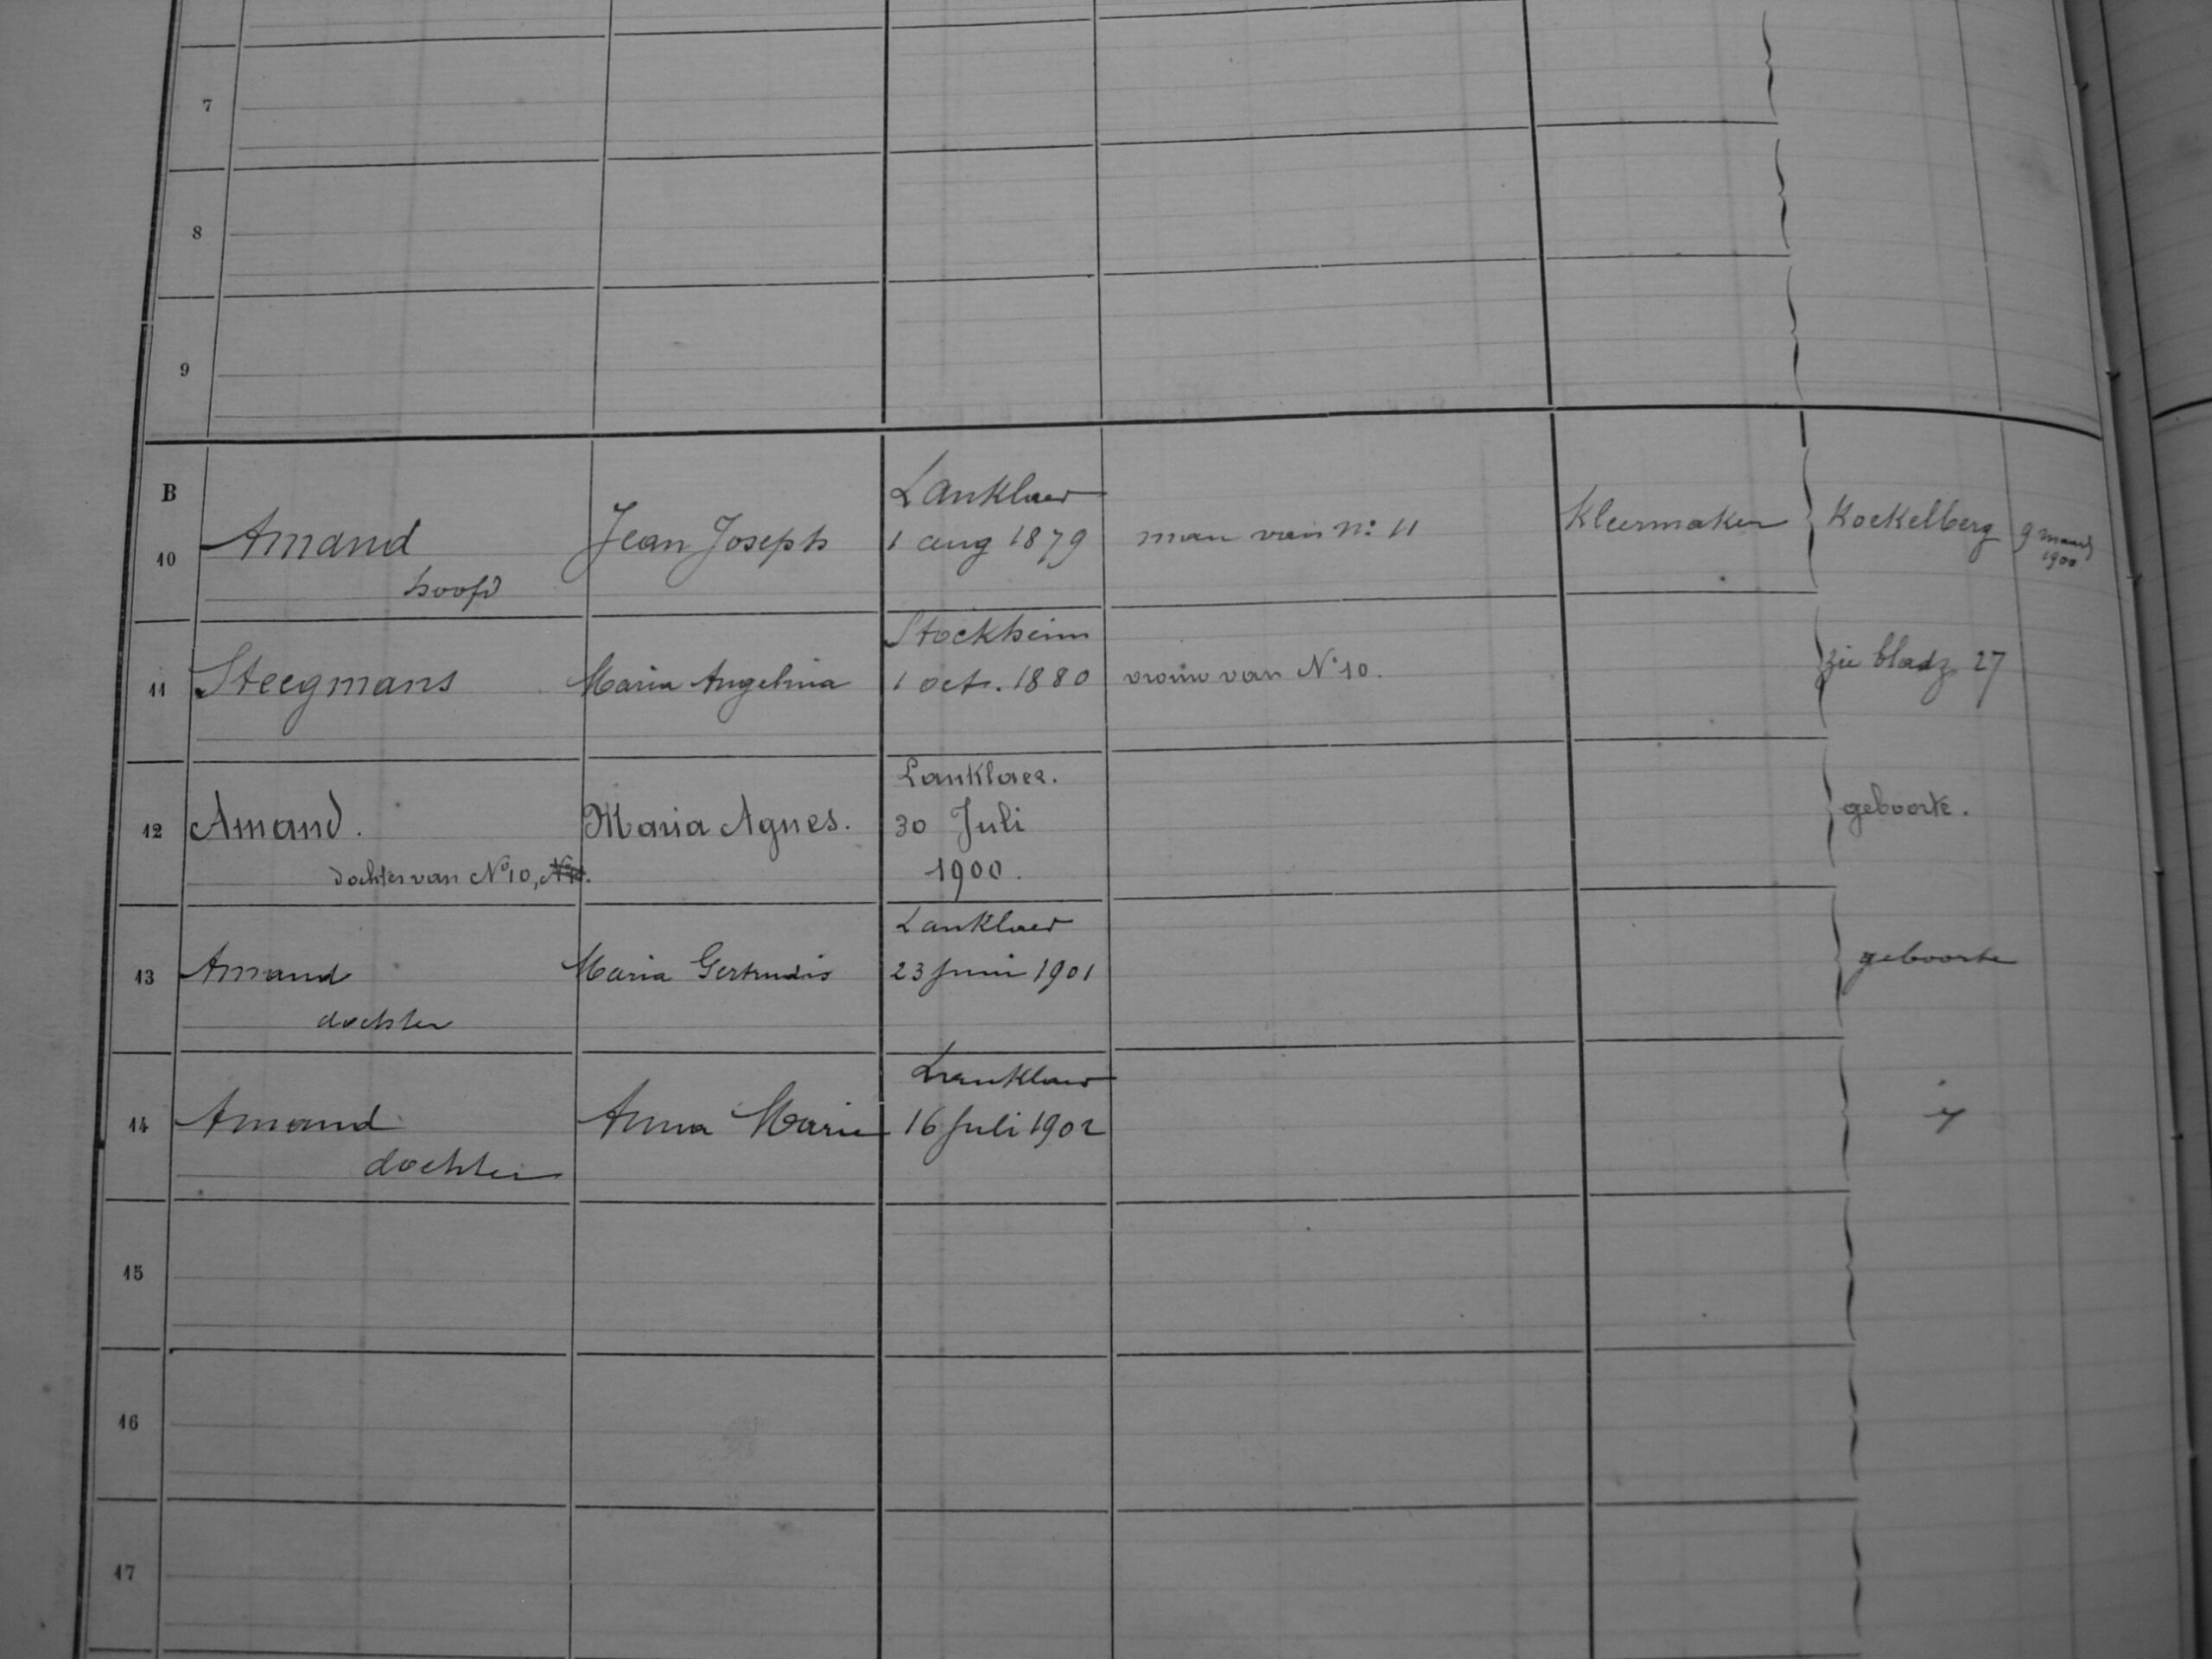 7
8
9
B
10 Amand Jean Joseph Lanklaer 1 aug 1879 man van n: 11 Kleermaker Koekelberg 9 maart 1900
hoofd
11 Steegmans Maria Angelina Stockheim 1 oct. 1880 vrouw van N° 10. zie bladz 27
12 Amand. Maria Agnes. Lanklaer. 30 Juli 1900. geboorte.
dochter van N° 10,
13 Amand Maria Gertrudis Lanklaer 23 Juni 1901 geboorte
dochter
14 Amand Anna Maria Lanklaer 16 Juli 1902
dochter
15
16
17